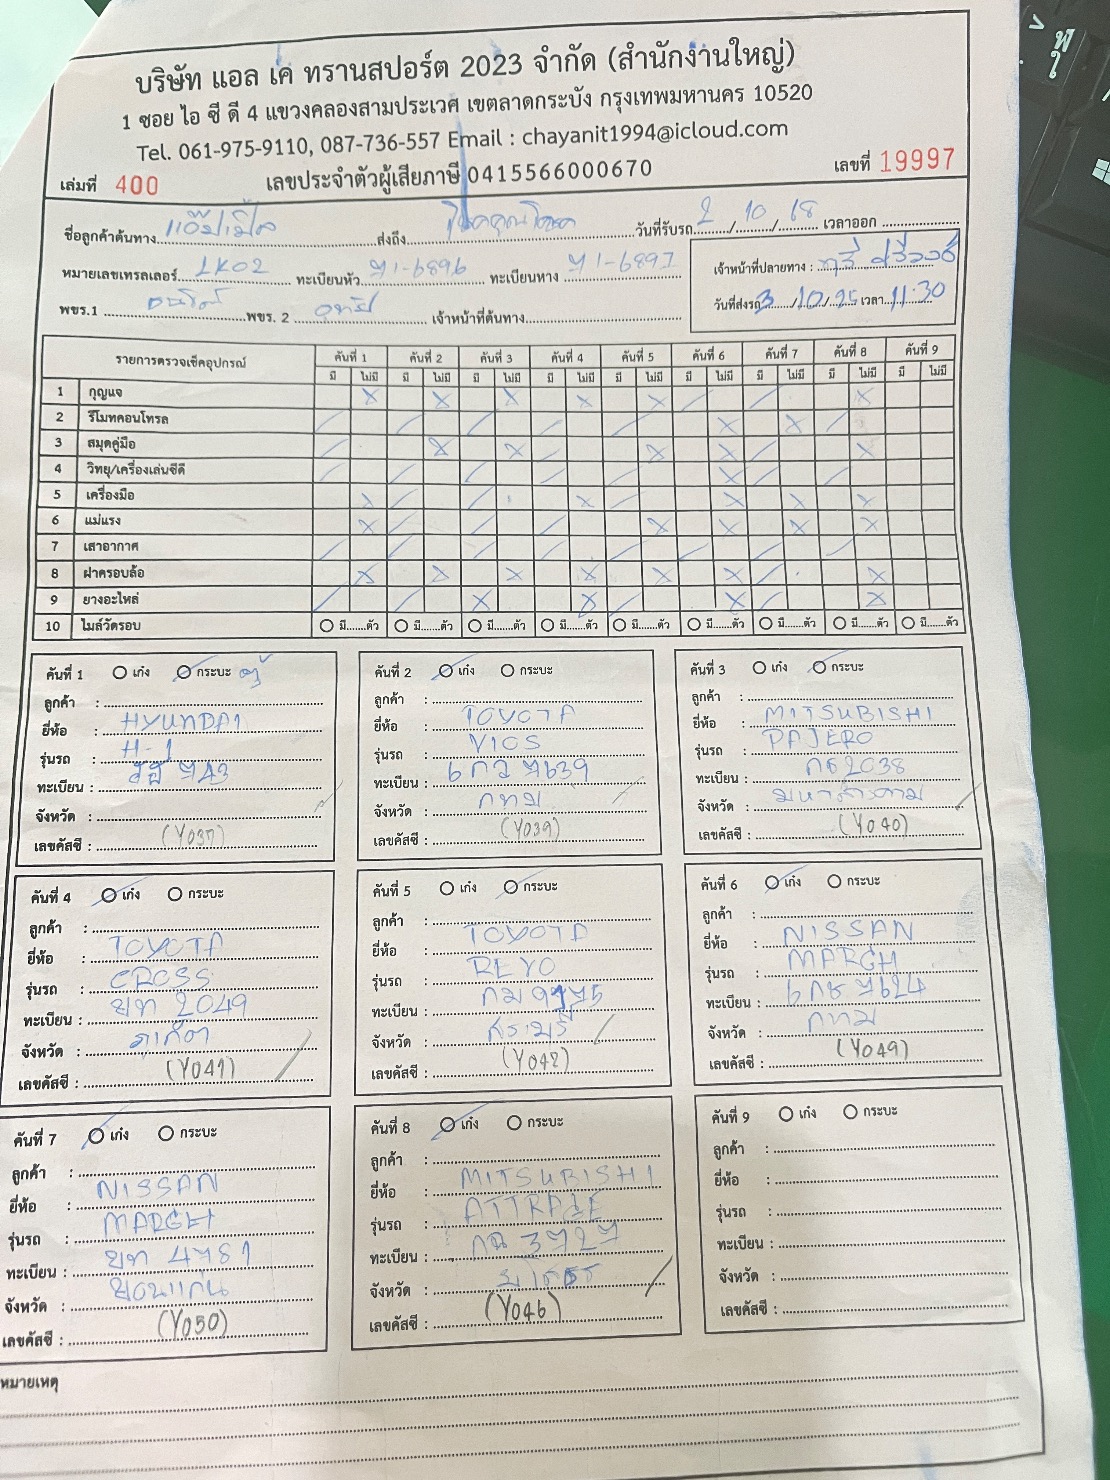 บริษัท แอล เค ทรานสปอร์ต 2023 จำกัด (สำนักงานใหญ่)
1 ซอย ไอ ซี ดี 4 แขวงคลองสามประเวศ เขตลาดกระบัง กรุงเทพมหานคร 10520
Tel. 061-975-9110, 087-736-557 Email : chayanit1994@icloud.com
เล่มที่ 400 เลขประจำตัวผู้เสียภาษี 0415566000670 เลขที่ 19997
ชื่อลูกค้าต้นทาง ส่งถึง วันที่รับรถ 2 / 10 / 68 เวลาออก
หมายเลขเทรลเลอร์ LK02 ทะเบียนหัว 71-6896 ทะเบียนหาง 71-6897 เจ้าหน้าที่ปลายทาง :
พขร.1 พขร. 2 เจ้าหน้าที่ต้นทาง วันที่ส่งรถ 3 / 10 / 25 เวลา 11:30
รายการตรวจเช็คอุปกรณ์ คันที่ 1 คันที่ 2 คันที่ 3 คันที่ 4 คันที่ 5 คันที่ 6 คันที่ 7 คันที่ 8 คันที่ 9
มี ไม่มี มี ไม่มี มี ไม่มี มี ไม่มี มี ไม่มี มี ไม่มี มี ไม่มี มี ไม่มี มี ไม่มี
1 กุญแจ
2 รีโมทคอนโทรล
3 สมุดคู่มือ
4 วิทยุ/เครื่องเล่นซีดี
5 เครื่องมือ
6 แม่แรง
7 เสาอากาศ
8 ฝาครอบล้อ
9 ยางอะไหล่
10 ไมล์วัดรอบ มี......ตัว มี......ตัว มี......ตัว มี......ตัว มี......ตัว มี......ตัว มี......ตัว มี......ตัว มี......ตัว
คันที่ 1 เก๋ง กระบะ ตู้
ลูกค้า :
ยี่ห้อ : HYUNDAI
รุ่นรถ : H-1
ทะเบียน : 743
จังหวัด :
เลขคัสซี : (Y037)
คันที่ 2 เก๋ง กระบะ
ลูกค้า :
ยี่ห้อ : TOYOTA
รุ่นรถ : VIOS
ทะเบียน : 6กว 7639
จังหวัด : กทม
เลขคัสซี : (Y039)
คันที่ 3 เก๋ง กระบะ
ลูกค้า :
ยี่ห้อ : MITSUBISHI
รุ่นรถ : PAJERO
ทะเบียน : 2038
จังหวัด : มหาสารคาม
เลขคัสซี : (Y040)
คันที่ 4 เก๋ง กระบะ
ลูกค้า :
ยี่ห้อ : TOYOTA
รุ่นรถ : CROSS
ทะเบียน : ขท 2049
จังหวัด : ภูเก็ต
เลขคัสซี : (Y041)
คันที่ 5 เก๋ง กระบะ
ลูกค้า :
ยี่ห้อ : TOYOTA
รุ่นรถ : REVO
ทะเบียน : กม
จังหวัด :
เลขคัสซี : (Y042)
คันที่ 6 เก๋ง กระบะ
ลูกค้า :
ยี่ห้อ : NISSAN
รุ่นรถ : MARCH
ทะเบียน : 6กช 7624
จังหวัด : กทม
เลขคัสซี : (Y049)
คันที่ 7 เก๋ง กระบะ
ลูกค้า :
ยี่ห้อ : NISSAN
รุ่นรถ : MARCH
ทะเบียน : ขท 4781
จังหวัด : ขอนแก่น
เลขคัสซี : (Y050)
คันที่ 8 เก๋ง กระบะ
ลูกค้า :
ยี่ห้อ : MITSUBISHI
รุ่นรถ : ATTRAGE
ทะเบียน : 3727
จังหวัด : ยโสธร
เลขคัสซี : (Y046)
คันที่ 9 เก๋ง กระบะ
ลูกค้า :
ยี่ห้อ :
รุ่นรถ :
ทะเบียน :
จังหวัด :
เลขคัสซี :
หมายเหตุ